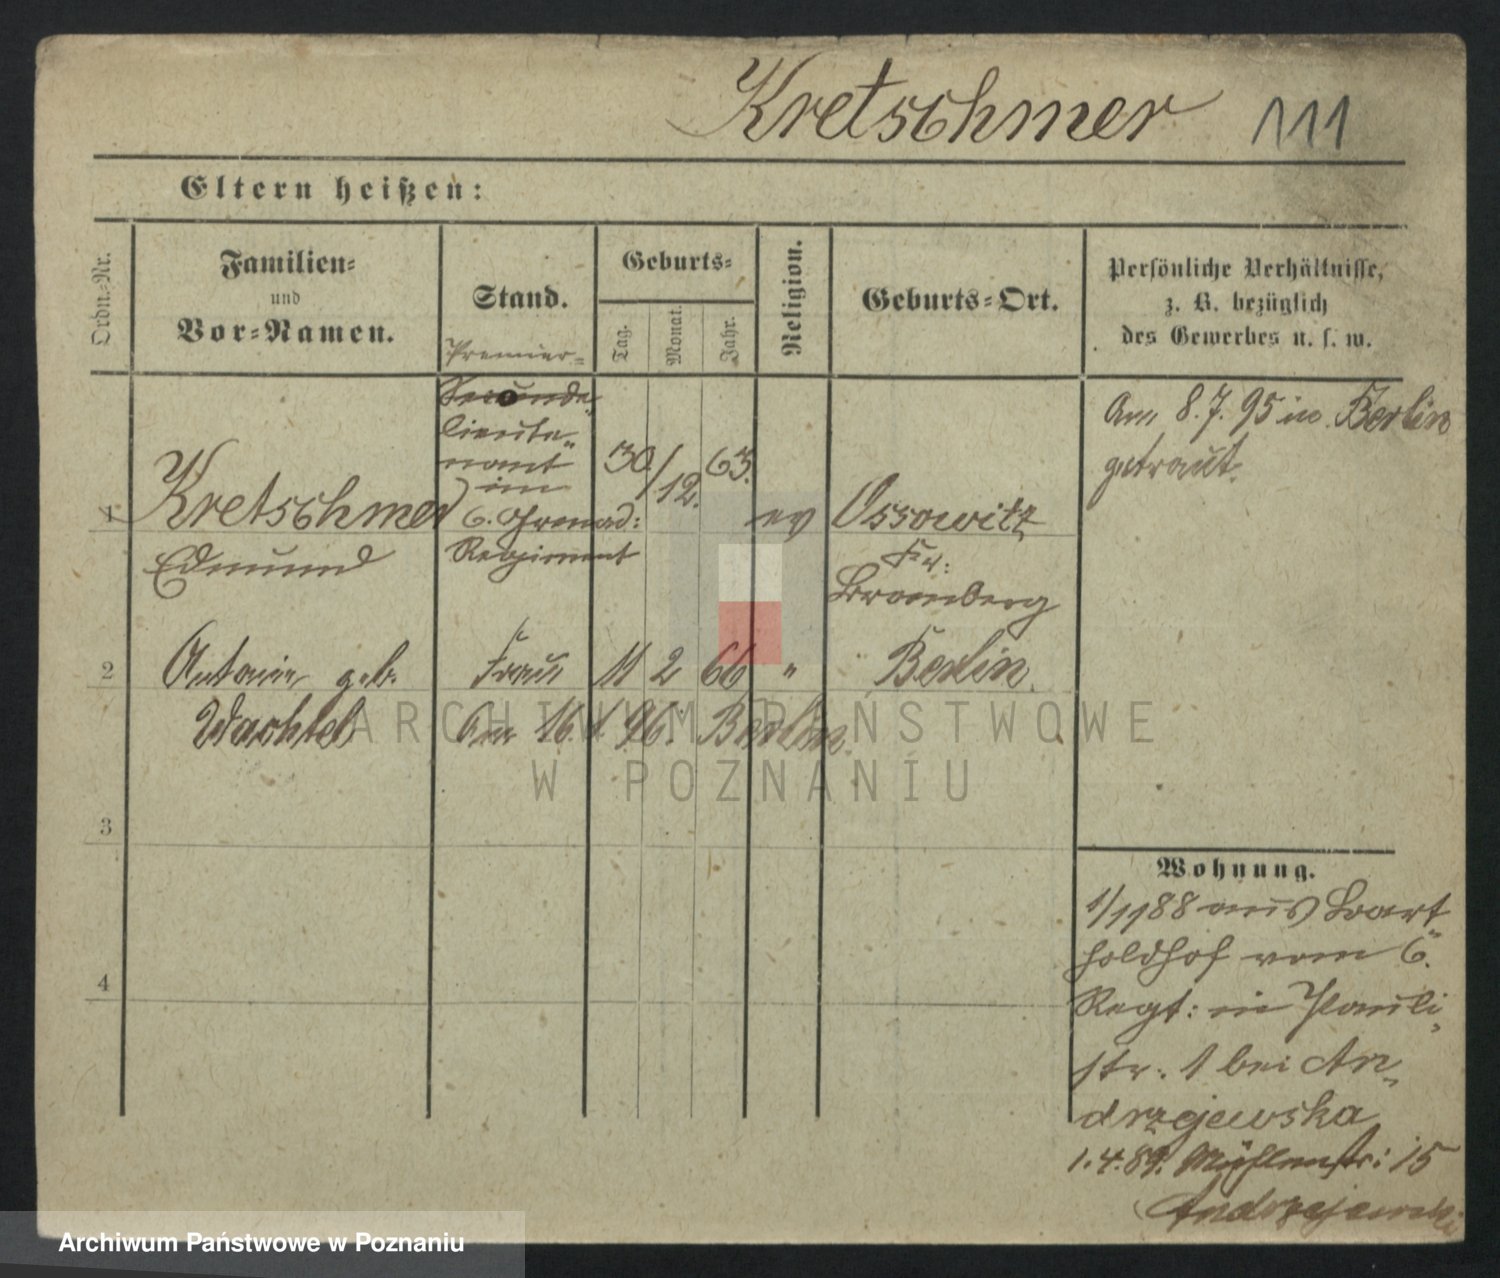 Kretschmer 111
Eltern heißen:
Ordn.-Nr.
Familien-
und
Vor-Namen.
Stand.
Geburts-
Tag.
Monat.
Jahr.
Religion.
Geburts-Ort.
Persönliche Verhältnisse,
z. B. bezüglich
des Gewerbes u. s. w.
Premier-
Seconde-
lieute-
nant
im
6. Grenad:
Regiment
1 Kretschmer
Edmund
30/12. 63.
ev
Ossowitz
Kr:
Bromberg
Am 8.7.95 in Berlin
getraut.
2 Antonie geb. Frau 11 2 66 " Berlin
Wachtel Am 16.1.96. Berlin
3
4
Wohnung.
1/11 88 aus Bart
holdhof vom 6.
Regt: in Pauli-
str. 1 bei An-
drzejewska
1.4.89. Mühlenstr: 15
Andrzejewski
ARCHIWUM PAŃSTWOWE
W POZNANIU
Archiwum Państwowe w Poznaniu